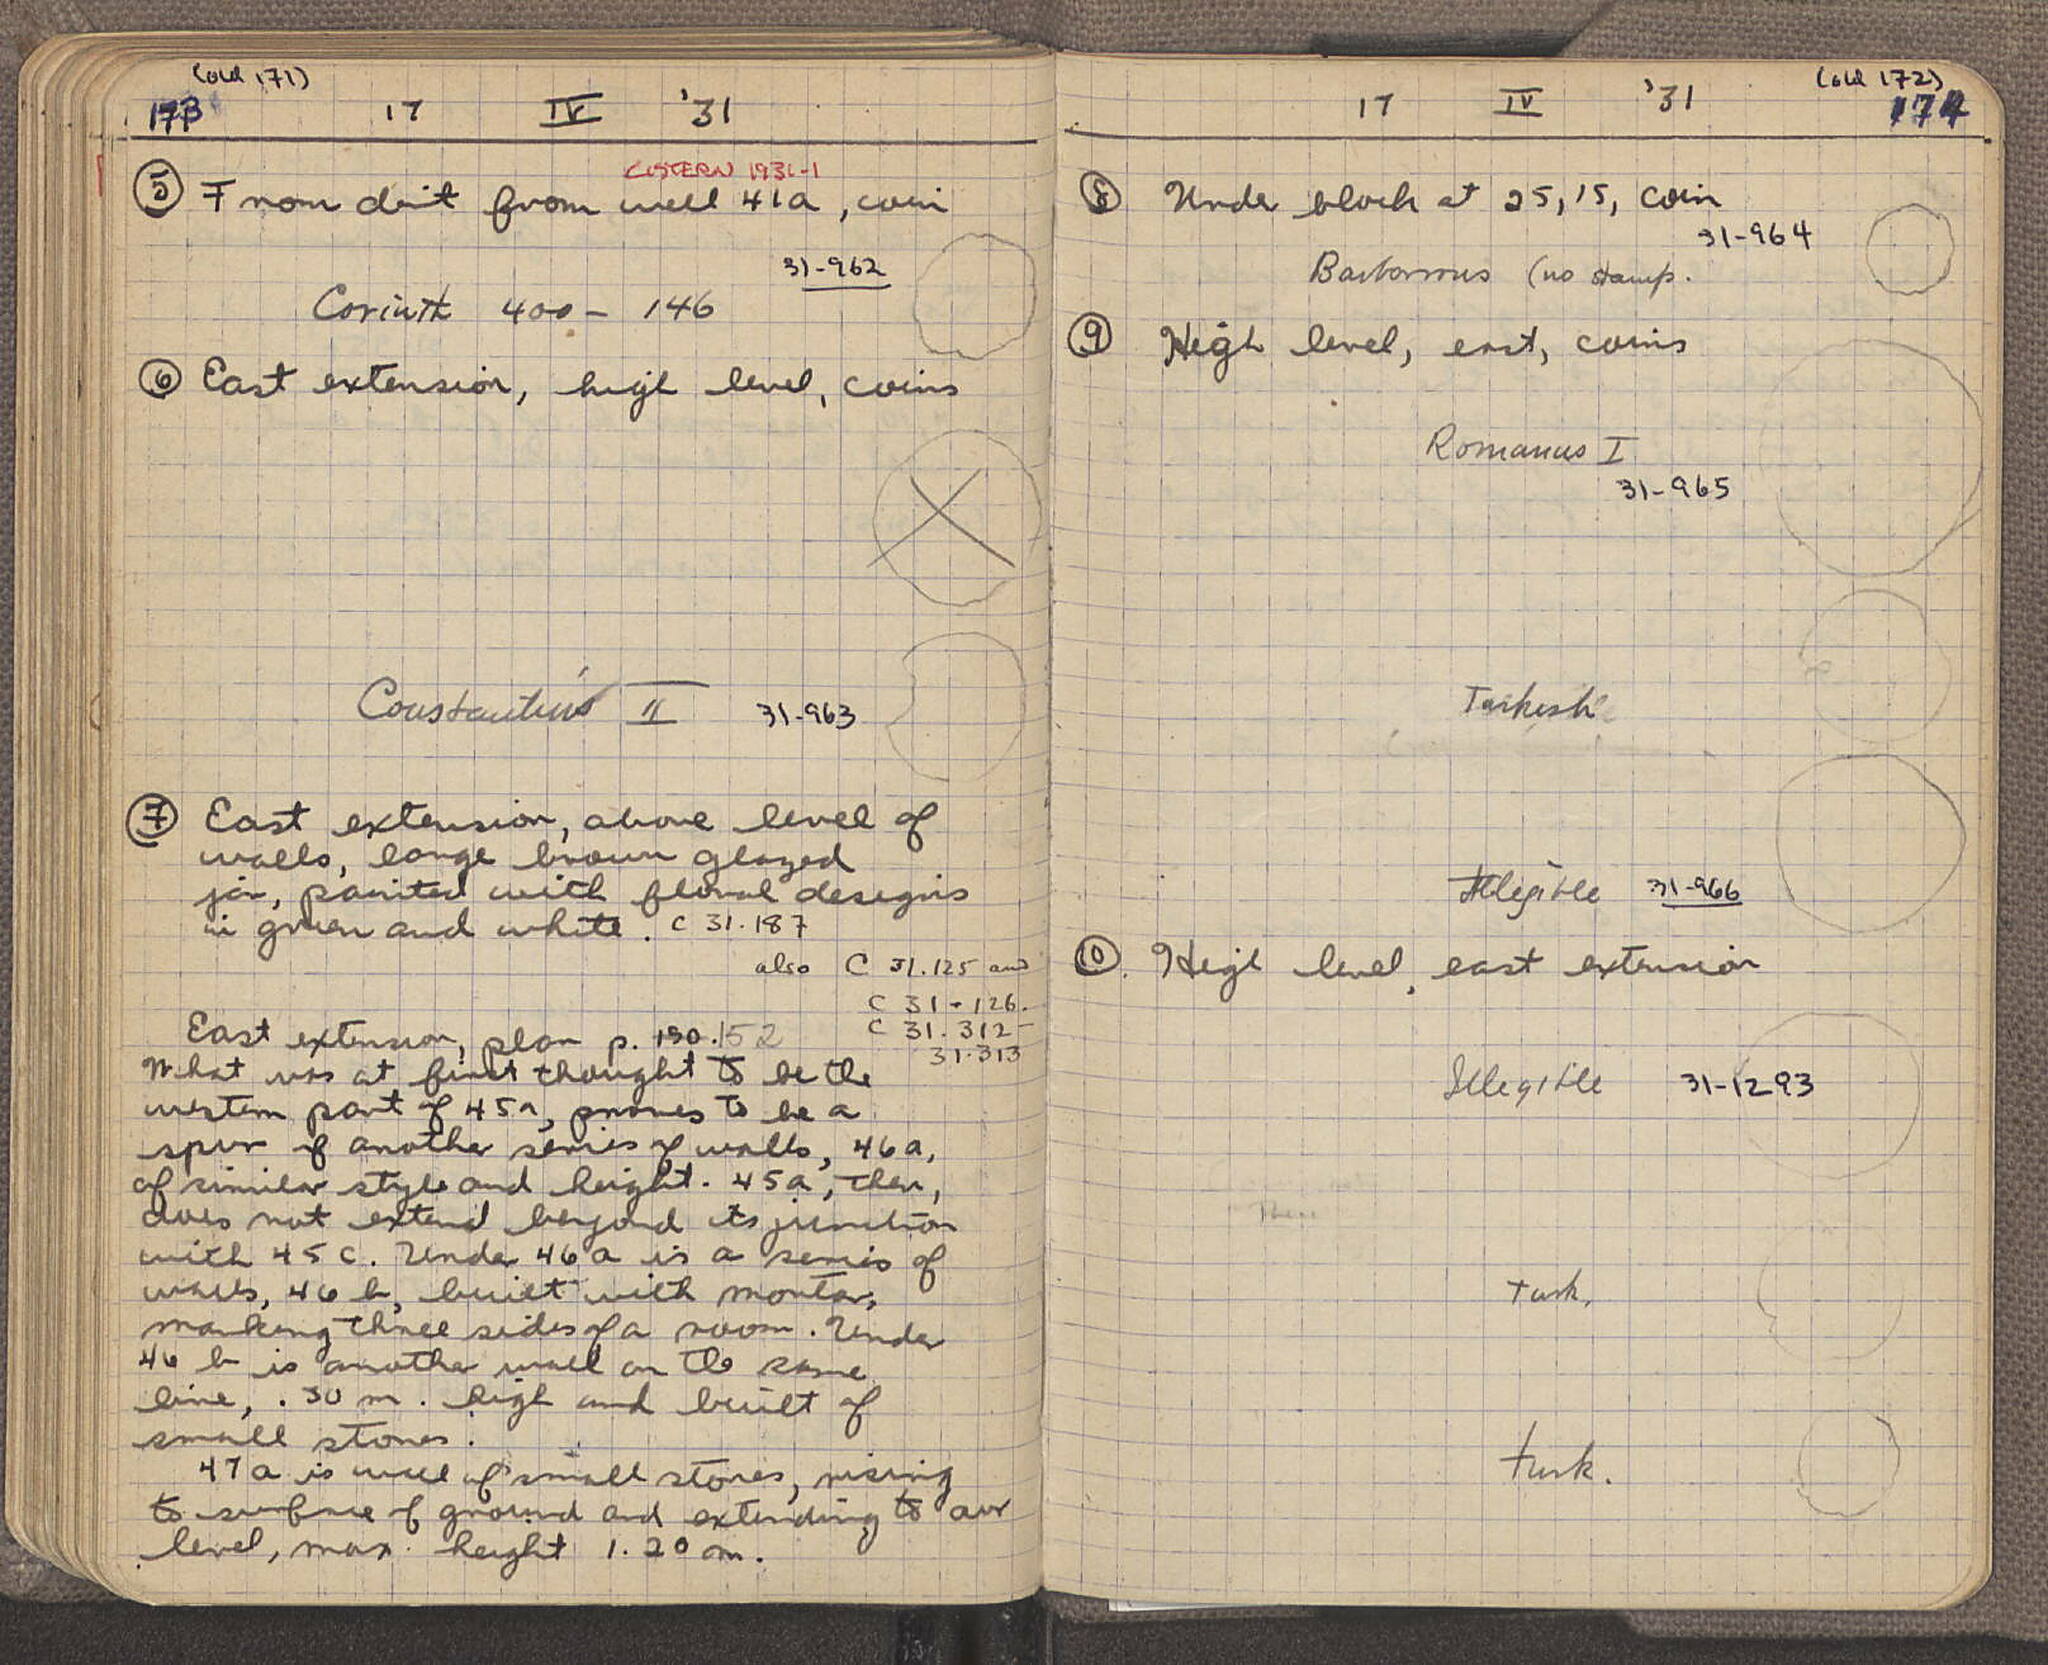 (old 171)
173 17 IV '31
CISTERN 1931-1
⑤ From dirt from well 41a, coin
31-962
Corinth 400 - 146
⑥ East extension, high level, coins
Constantius II 31-963
⑦ East extension, above level of
walls, large brown glazed
jar, painted with floral designs
in green and white. C 31.187
also C 31.125 and
C 31-126.
C 31.312-
31.313
East extension, plan p. 152
What was at first thought to be the
western part of 45a, proves to be a
spur of another series of walls, 46a,
of similar style and height. 45a, then,
does not extend beyond its junction
with 45c. Under 46a is a series of
walls, 46b, built with mortar,
marking three sides of a room. Under
46b is another wall on the same
line, .30 m. high and built of
small stones.
47a is wall of small stones, rising
to surface of ground and extending to our
level, max. height 1.20 m.
(old 172)
17 IV '31 174
⑧ Under block at 25, 15, coin
31-964
Barbarous (no stamp.
⑨ High level, east, coins
Romanus I
31-965
Turkish
Illegible 31-966
⑩. High level, east extension
Illegible 31-1293
Turk.
turk.